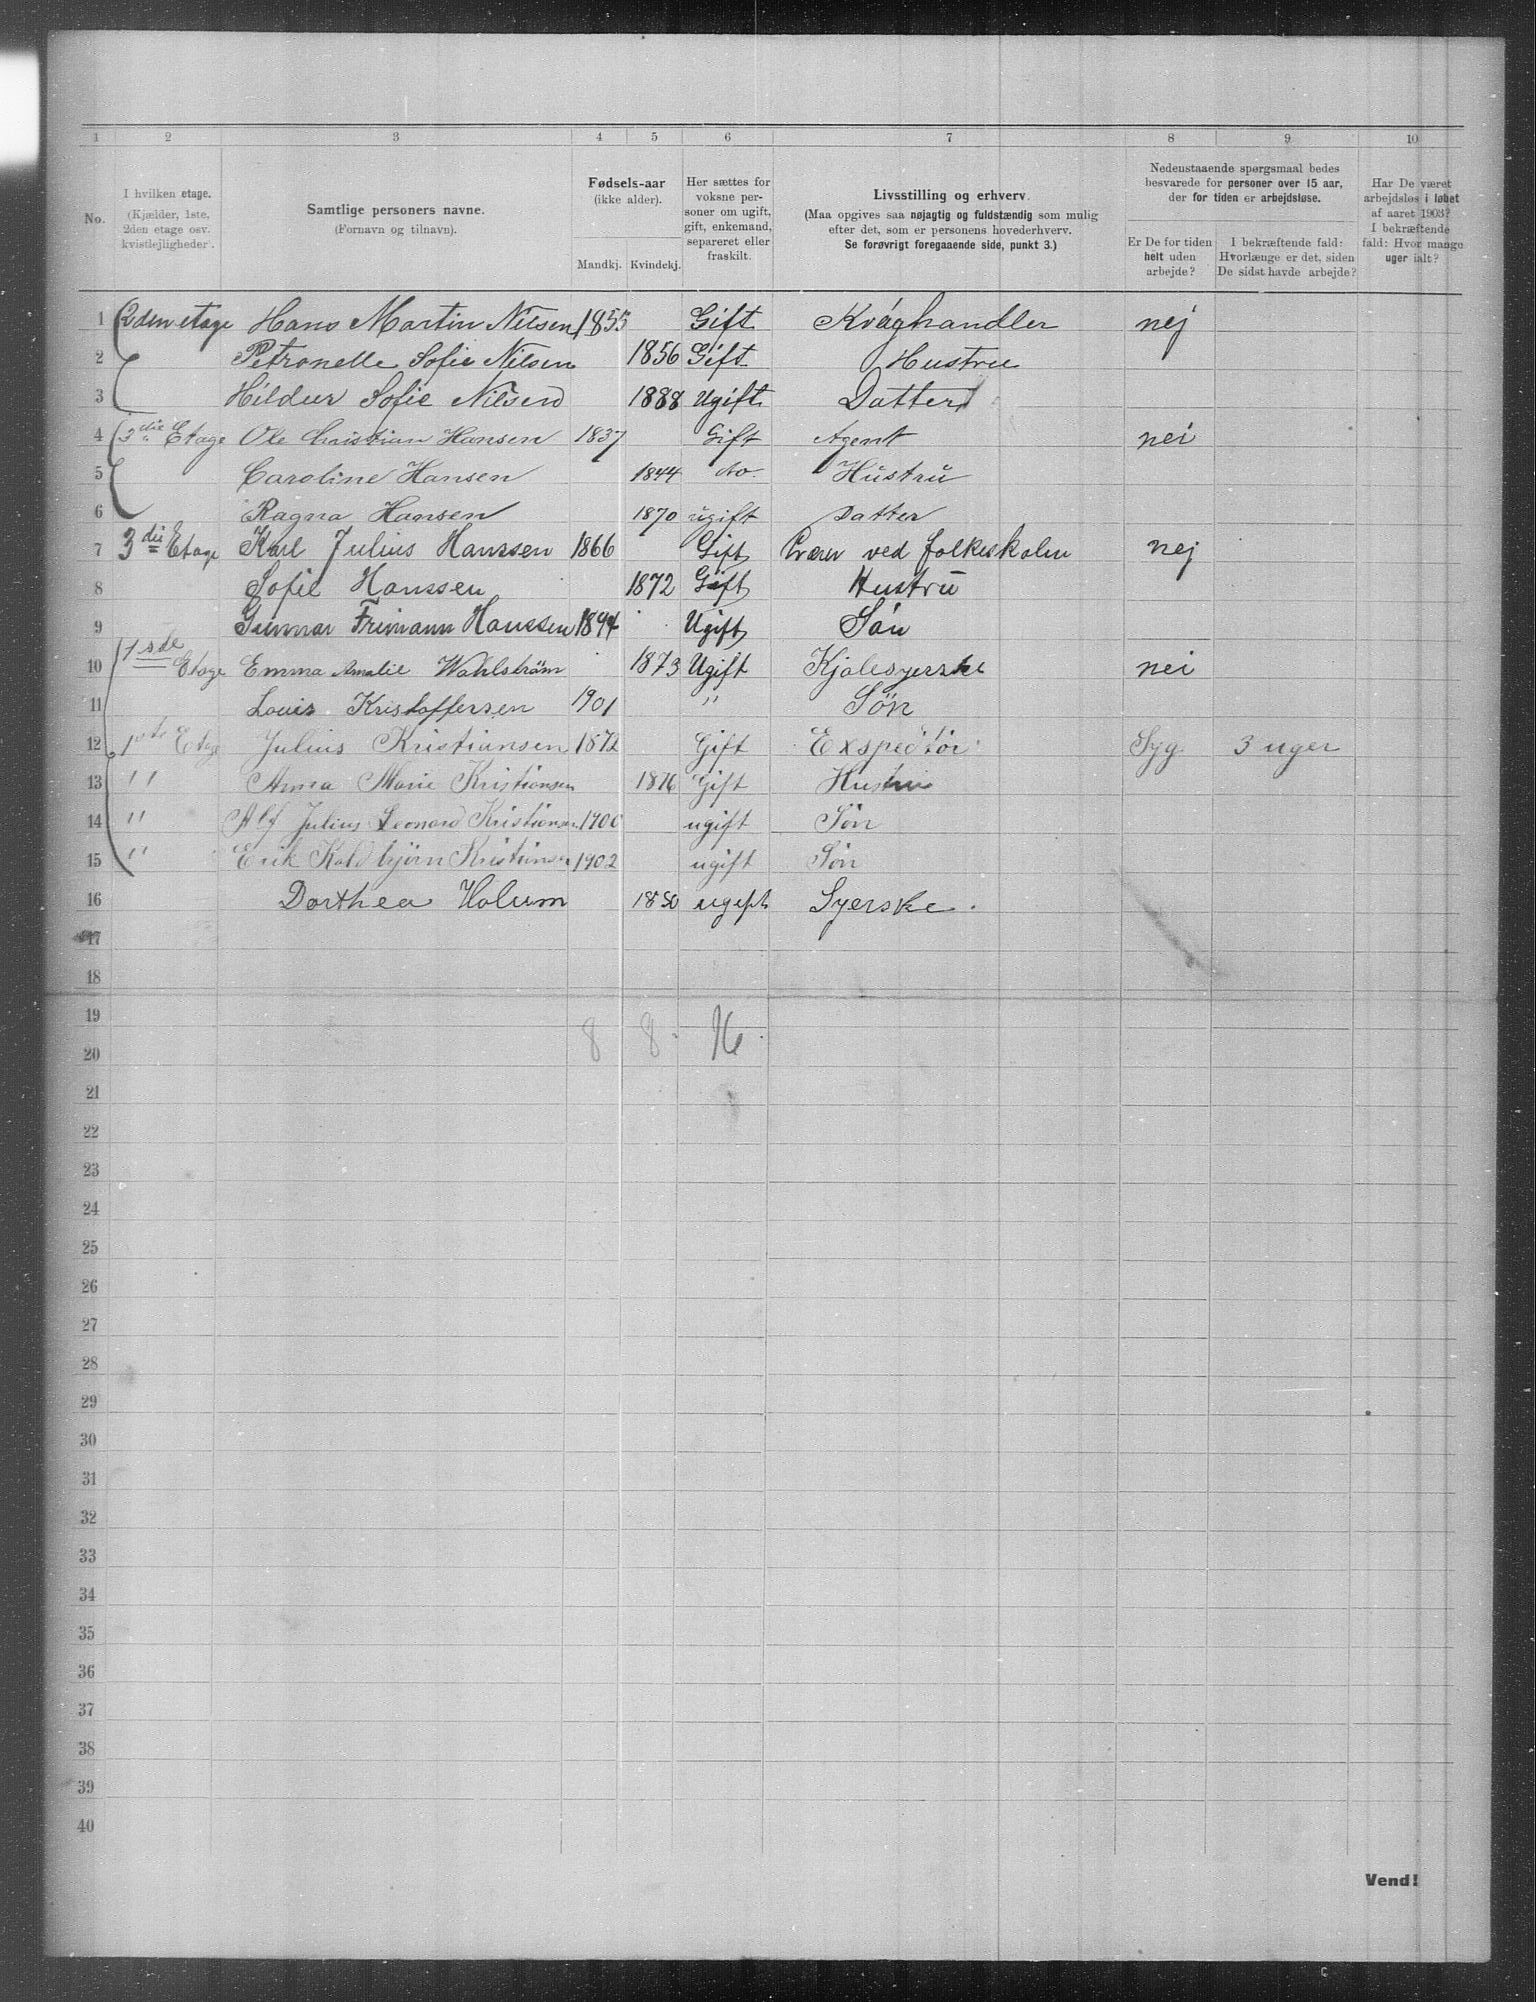 1 2 3 4 5 6 7 8 9 10
No.
I hvilken etage.
(Kjælder, 1ste,
2den etage osv.
kvistlejligheder.
Samtlige personers navne.
(Fornavn og tilnavn).
Fødsels-aar
(ikke alder).
Mandkj. Kvindekj.
Her sættes for
voksne per-
soner om ugift,
gift, enkemand,
separeret eller
fraskilt.
Livsstilling og erhverv.
(Maa opgives saa nøjagtig og fuldstændig som mulig
efter det, som er personens hovederhverv.
Se forøvrigt foregaaende side, punkt 3.)
Nedenstaaende spørgsmaal bedes
besvarede for personer over 15 aar,
der for tiden er arbejdsløse.
Er De for tiden
helt uden
arbejde?
I bekræftende fald:
Hvorlænge er det, siden
De sidst havde arbejde?
Har De været
arbejdsløs i løbet
af aaret 1903?
I bekræftende
fald: Hvor mange
uger ialt?
1 2den etage Hans Martin Nilsen 1855 Gift Kvæghandler nej
2 Petronelle Sofie Nilsen 1856 Gift Hustru
3 Hildur Sofie Nilsen 1888 Ugift Datter
4 3die Etage Ole Christian Hansen 1837 Gift Agent nei
5 Caroline Hansen 1844 do. Hustru
6 Ragna Hansen 1870 ugift Datter
7 3die Etage Karl Julius Hanssen 1866 Gift Lærer ved folkeskolen nej
8 Sofie Hanssen 1872 Gift Hustru
9 Gunnar Frimann Hanssen 1894 Ugift Søn
10 1ste Etage Emma Amalie Wahlstrøm 1873 Ugift Kjolesyerske nei
11 Louis Kristoffersen 1901 " Søn
12 1ste Etage Julius Kristiansen 1872 Gift Expeditør Syg 3 uger
13 " Anna Marie Kristiansen 1876 Gift Hustru
14 " Alf Julius Leonard Kristiansen 1900 ugift Søn
15 " Erik Koldbjørn Kristiansen 1902 ugift Søn
16 Dorthea Holum 1850 ugift Syerske.
17
18
19
8 8 16
20
21
22
23
24
25
26
27
28
29
30
31
32
33
34
35
36
37
38
39
40
Vend!